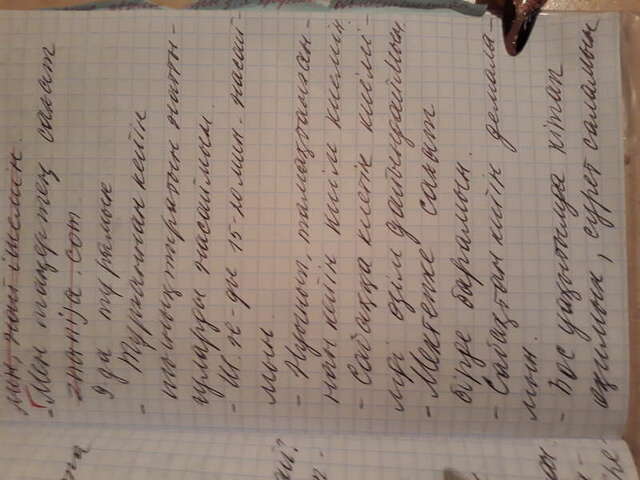 мен, шай ішемін.
- Мен таңертең сағат
znanija.com
9 да тұрамын
- Тұрғаннан кейін
шынықтыратын жатты-
ғуларды жасаймын.
- Ш. ж-ды 15-20 мин. жасай-
мын.
- Жуынып, тамақтанған-
нан кейін киім киемін
- Сабаққа киетін киімі-
мді өзім дайындаймын.
- Мектепке сағат
бірде барамын.
- Сабақтан кейін демала-
мын.
- Бос уақытымда кітап
оқимын, сурет саламын